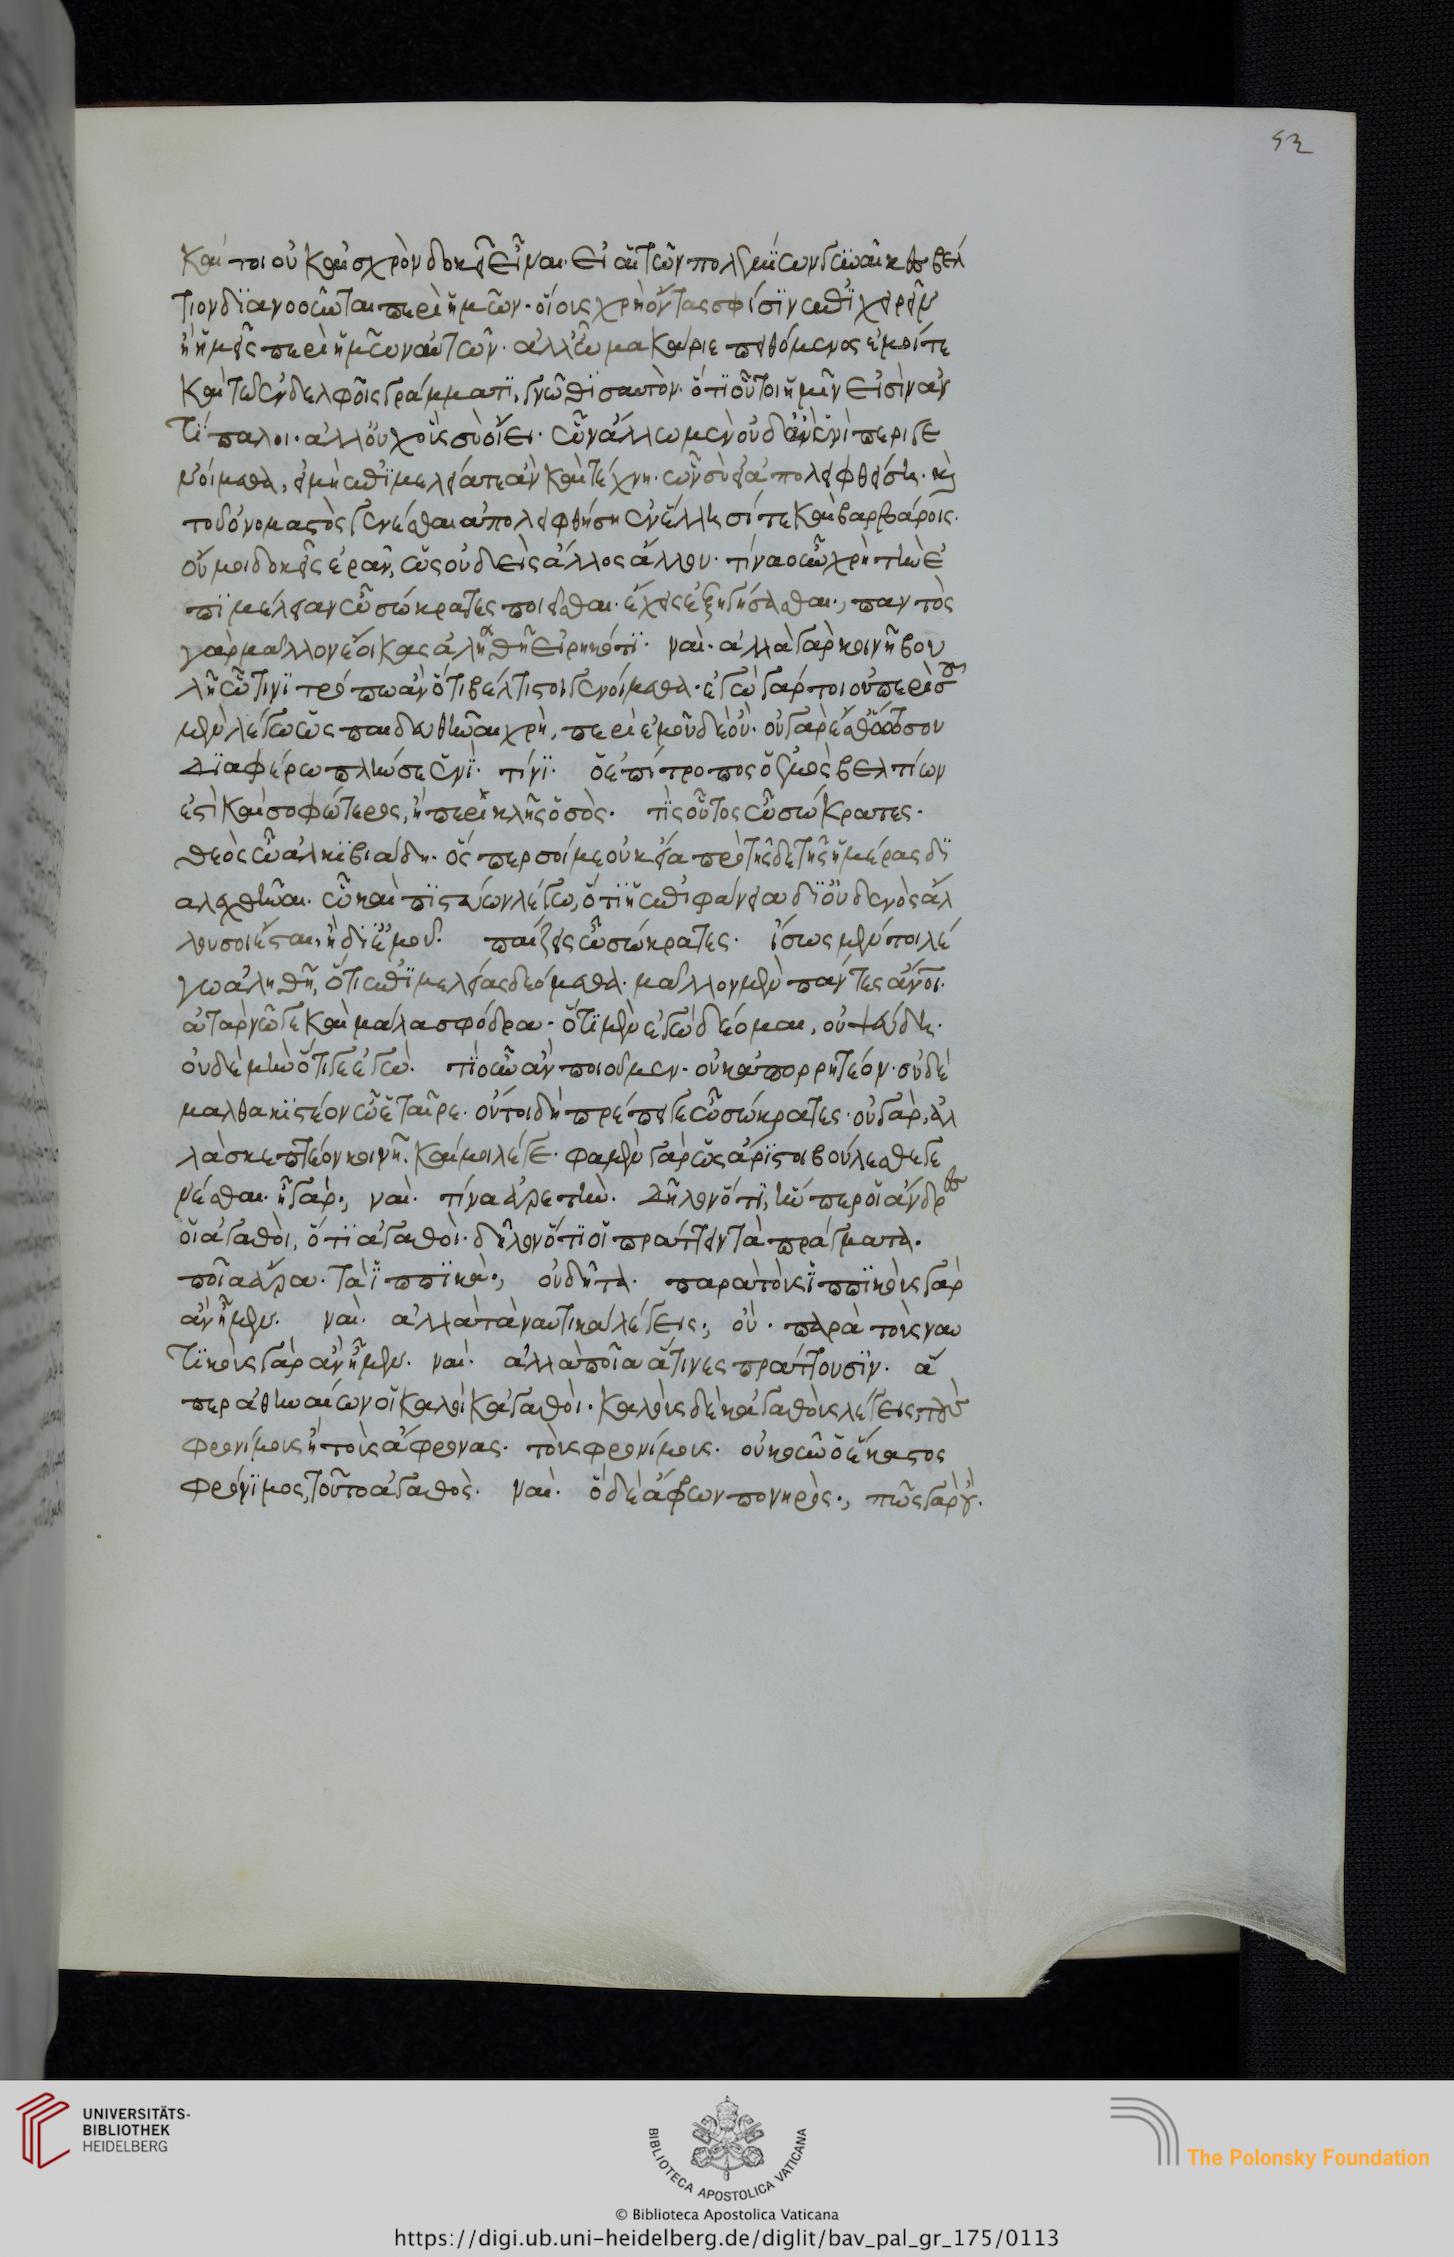 καί τοι οὐκ αἰσχρὸν δοκεῖ εἶναι. εἰ αἱ τῶν πολεμίων γυναῖκες βέλ
τιον διανοοῦνται περὶ ἡμῶν. οἵους χρὴ ὄντας σφίσιν ἐπιχειρεῖν
ἢ ἡμεῖς περὶ ἡμῶν αὐτῶν. ἀλλ' ὦ μακάριε πειθόμενος ἐμοί τε
καὶ τῷ ἐν δελφοῖς γράμματι, γνῶθι σαυτὸν. ὅτι οὗτοι ἡμῖν εἰσὶν ἀν
τίπαλοι. ἀλλ' οὐχ οὓς σὺ οἴει. ὧν ἄλλω μὲν οὐδ' ἂν ἑνὶ περιγε
νοίμεθα, εἰ μὴ ἐπιμελεία τε ἂν καὶ τέχνη. ὧν σὺ εἰ ἀπολειφθείση. καὶ
τοῦ ὀνομαστὸς γενέσθαι ἀπολειφθήση ἐν ἕλλησί τε καὶ βαρβάροις.
οὗ μοι δοκεῖς ἐρᾶν, ὡς οὐδεὶς ἄλλος ἄλλου. τίνα οὖν χρὴ τὴν ἐ
πιμέλειαν ὦ σώκρατες ποιεῖσθαι. ἔχεις ἐξηγήσασθαι; παντὸς
γὰρ μᾶλλον ἔοικας ἀληθῆ εἰρηκότι. ναί. ἀλλὰ γὰρ κοινῆ βου
λὴ ὧτινι τρόπω ἂν ὅτι βέλτιστοι γενοίμεθα. ἐγὼ γάρ τοι οὐ περὶ σοῦ
μὲν λέγω ὡς παιδευθῆναι χρὴ, περὶ ἐμοῦ δὲ οὔ. οὐ γὰρ ἔσθ' ὅτου σου
διαφέρω πλήν γε ἑνί. τίνι. ὁ ἐπίτροπος ὁ ἐμὸς βελτίων
ἐστὶ καὶ σοφώτερος, ἢ περικλῆς ὁ σός. τίς οὗτος ὦ σώκρατες.
θεὸς ὦ ἀλκιβιάδη. ὅς περ σοί με οὐκ εἴα πρὸ τῆσδε τῆς ἡμέρας δι
αλεχθῆναι. ὧ καὶ πιστεύων λέγω, ὅτι ἡ ἐπιφάνεια δι' οὐδενὸς ἄλ
λου σοι ἔσται, ἢ δι' ἐμοῦ. παίζεις ὦ σώκρατες. ἴσως μέντοι λέ
γω ἀληθῆ, ὅτι ἐπιμελείας δεόμεθα. μᾶλλον μὲν πάντες ἄνοι.
ἀτὰρ νῶ γε καὶ μάλα σφόδρα. ὅτι μὲν ἐγὼ δέομαι, οὐ ψεύδη.
οὐδὲ μὴν ὅτι γε ἐγώ. τί οὖν ἂν ποιοῦμεν. οὐκ ἀπορρητέον. οὐδὲ
μαλθακιστέον ὦ ἑταῖρε. οὔτοι δὴ πρέπει γε ὦ σώκρατες. οὐ γάρ, ἀλ
λὰ σκεπτέον κοινῆ. καί μοι λέγε. φαμὲν γὰρ ὡς ἄριστοι βούλεσθαι γε
νέσθαι. ἦ γάρ; ναί. τίνα ἀρετὴν. δῆλον ὅτι, ἥν περ οἱ ἄνδρες
οἱ ἀγαθοί, ὅτι ἀγαθοί. δῆλον ὅτι οἱ πράττειν τὰ πράγματα.
ποῖα ἄρα. τὰ ἱππικά; οὐ δῆτα. παρὰ τοὺς ἱππικοὺς γὰρ
ἂν ἦμεν. ναί. ἀλλὰ τὰ ναυτικὰ λέγεις; οὔ. παρὰ τοὺς ναυ
τικοὺς γὰρ ἂν ἦμεν. ναί. ἀλλὰ ποῖα ἅ τινες πράττουσιν. ἅ
περ ἀθηναίων οἱ καλοὶ κἀγαθοί. καλοὺς δὲ κἀγαθοὺς λέγεις, τοὺς
φρονίμους ἢ τοὺς ἄφρονας. τοὺς φρονίμους. οὐκοῦν ὃ ἕκαστος
φρόνιμος, τοῦτο ἀγαθὸς. ναί. ὃ δὲ ἄφρων πονηρὸς; πῶς γὰρ οὔ.
52
UNIVERSITÄTS-
BIBLIOTHEK
HEIDELBERG
BIBLIOTECA APOSTOLICA VATICANA
The Polonsky Foundation
© Biblioteca Apostolica Vaticana
https://digi.ub.uni-heidelberg.de/diglit/bav_pal_gr_175/0113